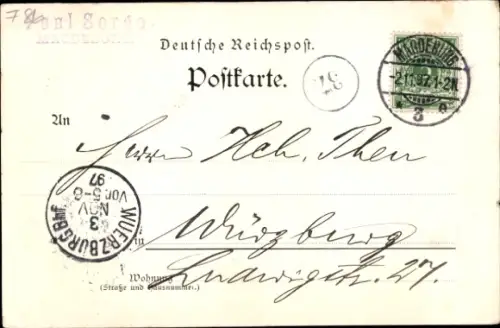 78
Paul Sorge
MAGDEBURG
Deutsche Reichspost.
Postkarte.
37
MAGDEBURG
-2.11.97.1-2N.
3 e
An
Herrn Hch. Then
WUERZBURG BHF
3
NOV
Vor. 5-6
97
in Würzburg
Wohnung Ludwigstr. 27.
(Straße und Hausnummer.)